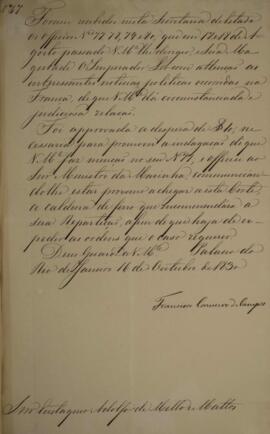 Foram recebidos nesta Secretaria de Estado
os Officios Nos 77, 78, 79 e 80, que em
passado V. Mce. dirigio, e Sua Ma-
gestade O Imperador leo com attenção as
interessantes noticias politicas occorridas na
França, de que V. Mce. dá circunstanciada e
judiciosa relação.
Foi approvada a despeza de ne-
cessaria para promover a indagação de que
V. Mce. faz menção no seu No e officiei ao
Snr Ministro da Marinha, communican-
do-lhe estar proxima a chegar a esta Corte,
a caldeira de ferro que encommendára a
sua Repartição, a fim de que haja de ex-
pedir as ordens que o caso requerer.
Deus Guarde a V. Mce. Palacio do
Rio de Janeiro 16 de Outubro de 1830
Francisco Carneiro de Campos
Snr Eustaquio Adolfo de Mello e Mattos